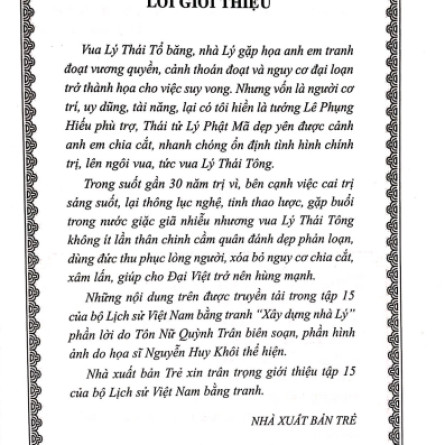 LỜI GIỚI THIỆU
Vua Lý Thái Tổ băng, nhà Lý gặp họa anh em tranh
đoạt vương quyền, cảnh thoán đoạt và nguy cơ đại loạn
trở thành họa cho việc suy vong. Nhưng vốn là người cơ
trí, uy dũng, tài năng, lại có tôi hiền là tướng Lê Phụng
Hiểu phù trợ, Thái tử Lý Phật Mã dẹp yên được cảnh
anh em chia cắt, nhanh chóng ổn định tình hình chính
trị, lên ngôi vua, tức vua Lý Thái Tông.
Trong suốt gần 30 năm trị vì, bên cạnh việc cai trị
sáng suốt, lại thông lục nghệ, tinh thao lược, gặp buổi
trong nước giặc giã nhiễu nhương vua Lý Thái Tông
không ít lần thân chinh cầm quân đánh dẹp phản loạn,
dùng đức thu phục lòng người, xóa bỏ nguy cơ chia cắt,
xâm lấn, giúp cho Đại Việt trở nên hùng mạnh.
Những nội dung trên được truyền tải trong tập 15
của bộ Lịch sử Việt Nam bằng tranh “Xây dựng nhà Lý”
phần lời do Tôn Nữ Quỳnh Trân biên soạn, phần hình
ảnh do họa sĩ Nguyễn Huy Khôi thể hiện.
Nhà xuất bản Trẻ xin trân trọng giới thiệu tập 15
của bộ Lịch sử Việt Nam bằng tranh.
NHÀ XUẤT BẢN TRẺ